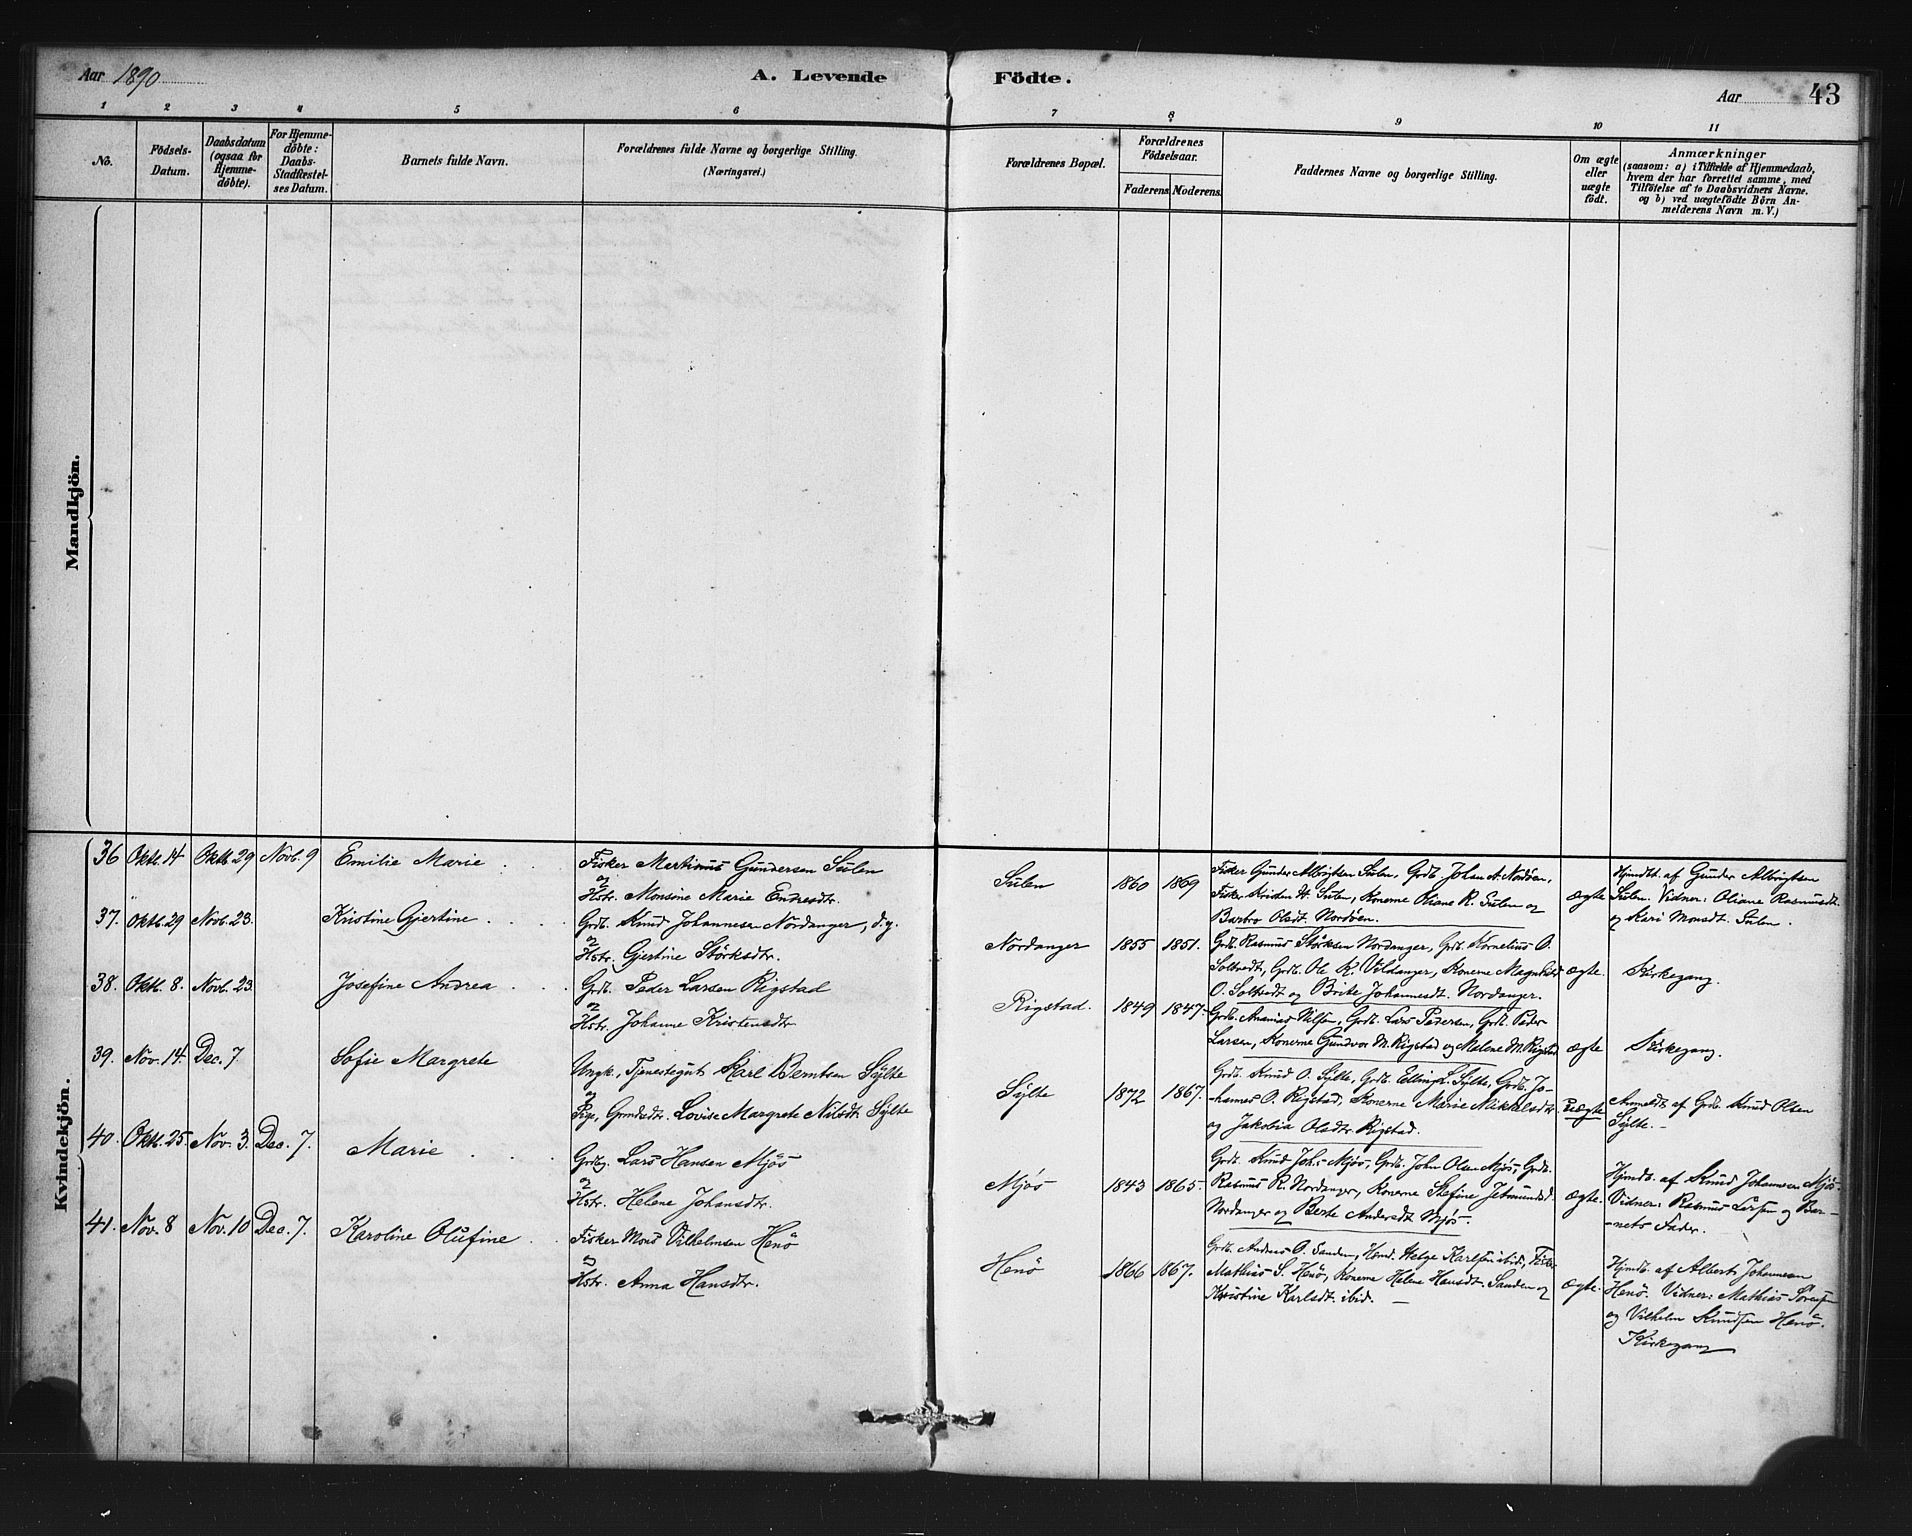 Aar 1890
A. Levende Födte.
Aar 43
1 2 3 4 5 6 7 8 9 10 11
No.
Födsels-
Datum.
Daabsdatum
(ogsaa for
Hjemme-
döbte).
For Hjemme-
döbte:
Daabs-
Stadfæstel-
ses Datum.
Barnets fulde Navn.
Forældrenes fulde Navne og borgerlige Stilling.
(Næringsvei.)
Forældrenes Bopæl.
Forældrenes
Födselsaar.
Faderens. Moderens.
Faddernes Navne og borgerlige Stilling.
Om ægte
eller
uægte
födt.
Anmærkninger
(saasom: a) i Tilfælde af Hjemmedaab,
hvem der har forrettet samme, med
Tilföielse af to Daabsvidners Navne,
og b) ved uægtefödte Börn An-
melderens Navn m. V.)
Mandkjön.
Kvindekjön.
36 Oktb. 14 Oktb 29 Novb. 9 Emilie Marie
Fisker Martinus Gundersen Sulen
og
Hstr. Monsine Marie Endresdtr.
Sulen 1860 1869
Fisker Gunder Albrigtsen Sulen, Grdb. Johan A. Nordöen,
Fisker Kristen H. Sulen, Konerne Kiane R. Sulen og
Barbro Olsdt. Nordöen.
ægte
Hjmdbt. af Gunder Albrigtsen
Sulen. Vidner: Oliane Rasmusdt.
og Kari Monsdt. Sulen.
37. Oktb. 29 Novb. 23. Kristine Gjertine
Grdb. Knud Johannesen Nordanger, d.y.
og
Hstr. Gjertine Störksdtr.
Nordanger 1855 1851.
Grdb. Rasmus Störksen Nordanger, Grdb. Kornelius O.
Soltvedt, Grdb. Ole K. Vildanger, Konerne Magnhild
O. Soltvedt og Brite Johannesdt. Nordanger.
ægte.
Kirkegang.
38. Oktb. 8. Novb. 23. Josefine Andrea
Grdb. Peder Larsen Rigstad
og
Hstr. Johanne Kristensdtr.
Rigstad. 1849 1847.
Grdb. Ananias Nilsen, Grdb. Lars Pedersen, Grdb. Peder
Larsen, Konerne Gundvor M. Rigstad og Malene M. Rigstad
ægte
Kirkegang.
39. Nov. 14 Dec. 7 Sofie Margrete
Ungk., Tjenestegut Karl Berntsen Sylte
og
Pige, Grmdsdt. Lovise Margrete Nilsdt. Sylte
Sylte 1872 1867.
Grdb. Knud O. Sylte, Grdb. Elling L. Sylte, Grdb. Jo-
-hannes O. Rigstad, Konerne Marie Mikkelsdtr.
og Jakobia Olsdtr. Rigstad.
uægte
Anmeldt af Grdb. Knud Olsen
Sylte.-
40. Oktb. 25. Nov. 3. Dec. 7. Marie
Grdbg. Lars Hansen Mjös
og
Hstr. Helene Johansdtr.
Mjös 1843 1865.
Grdb. Knud Joh.s Mjös, Grdb. John Olsen Mjös, Grdb.
Rasmus R. Nordanger, Konerne Stefine Jetmundsd.
Nordanger og Berte Andersdt. Mjös.
ægte.
Hjmdb. af Knud Johannesen Mjös.
Vidner: Rasmus Larsen og Bar-
-nets Fader.
41. Nov. 8 Nov. 10 Dec. 7. Karoline Olufine
Fisker Mons Vilhelmsen Henö
og
Hstr. Anna Hansdtr.
Henö 1866 1867.
Grdb. Andreas O. Sanden, Hmd. Helge Karlsen ibid, Fisker
Mathias S. Henö, Konerne Helene Hansdt. Sanden og
Kristine Karlsdt. ibid. -
ægte.
Hjmdb. af Albert Johannesen
Henö. Vidner: Mathias Sörensen
og Vilhelm Knudsen Henö.
Kirkegang